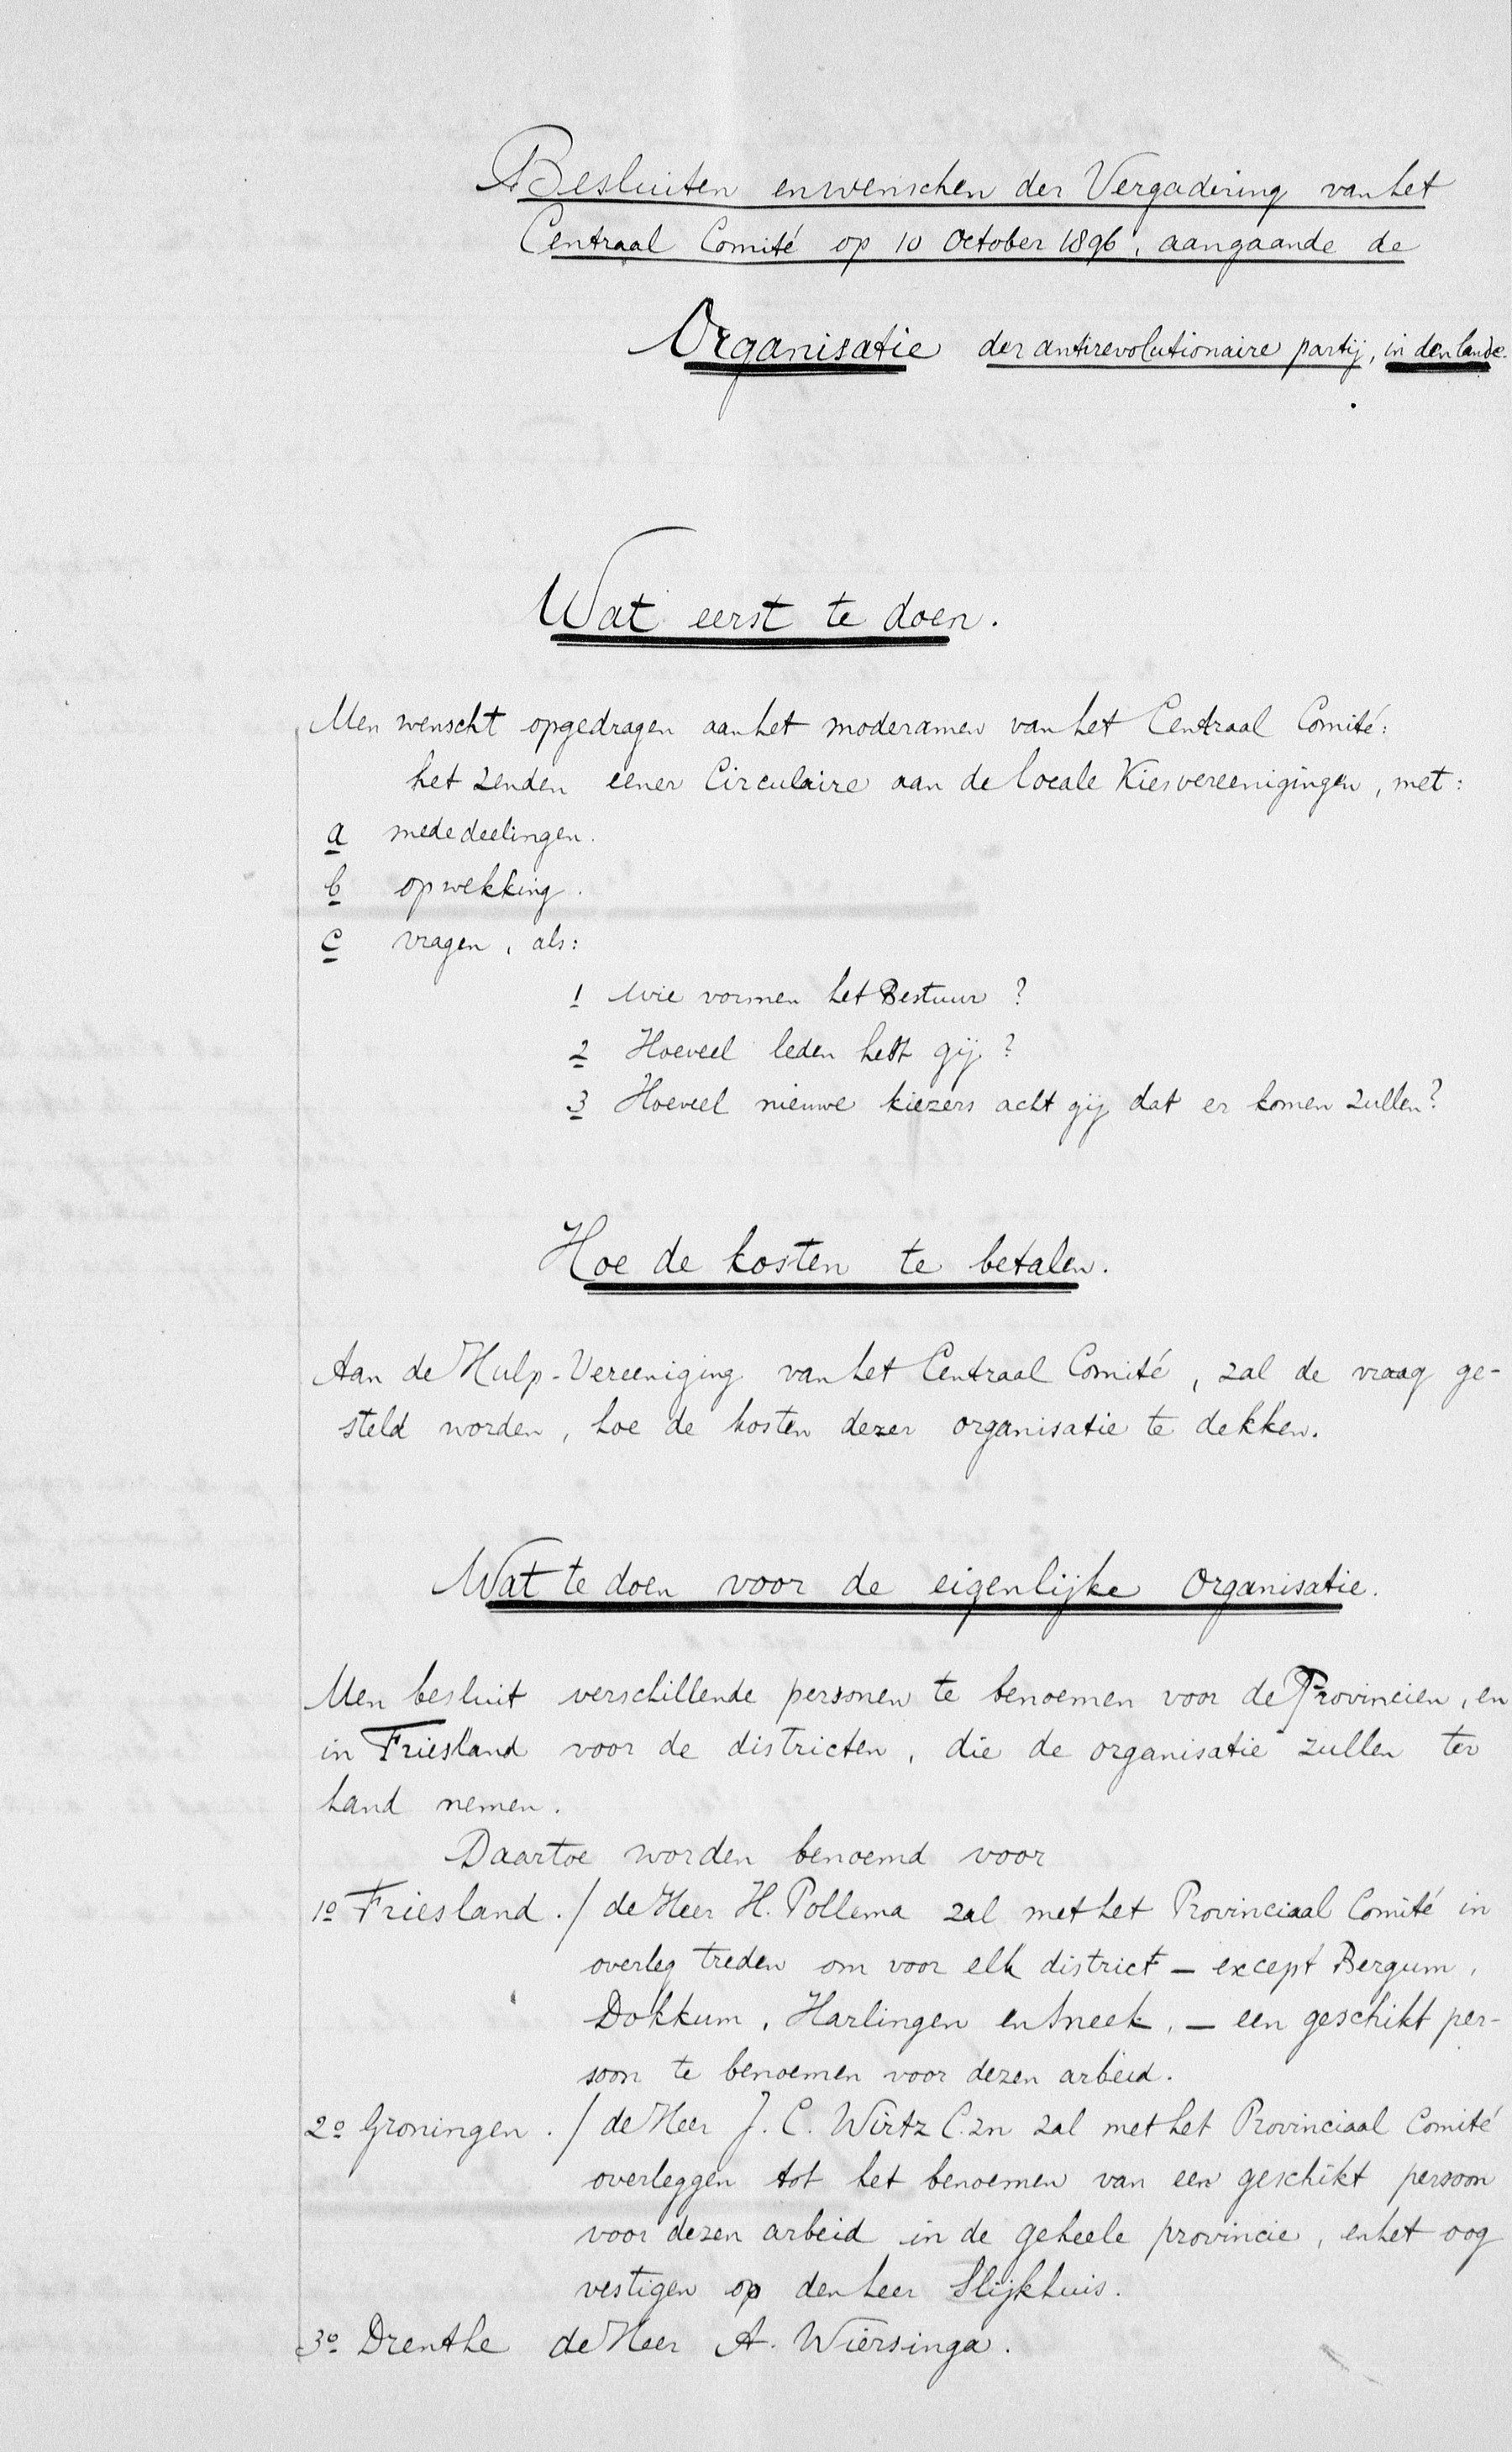 Besluiten en wenschen der Vergadering van het
Centraal Comité op 10 October 1896, aangaande de
Organisatie der antirevolutionaire partij, in den lande.
Wat eerst te doen.
Men wenscht opgedragen aan het moderamen van het Centraal Comité:
het zenden eener Circulaire aan de locale Kiesvereenigingen, met:
a mededeelingen.
b opwekking.
c vragen, als:
1 Wie vormen het Bestuur?
2 Hoeveel leden hebt gij?
3 Hoeveel nieuwe kiezers acht gij dat er komen zullen?
Hoe de kosten te betalen.
Aan de Hulp-Vereeniging van het Centraal Comité, zal de vraag ge-
steld worden, hoe de kosten dezer organisatie te dekken.
Wat te doen voor de eigenlijke Organisatie.
Men besluit verschillende personen te benoemen voor de Provincien, en
in Friesland voor de districten, die de organisatie zullen ter
hand nemen.
Daartoe worden benoemd voor
1o Friesland. / de Heer H. Pollema zal met het Provinciaal Comité in
overleg treden om voor elk district – except Bergum,
Dokkum, Harlingen en Sneek, – een geschikt per-
soon te benoemen voor dezen arbeid.
2o Groningen. / de Heer J. C. Wirtz C.zn zal met het Provinciaal Comité
overleggen tot het benoemen van een geschikt persoon
voor dezen arbeid in de geheele provincie, en het oog
vestigen op den heer Slijkhuis.
3o Drenthe de Heer A. Wiersinga.